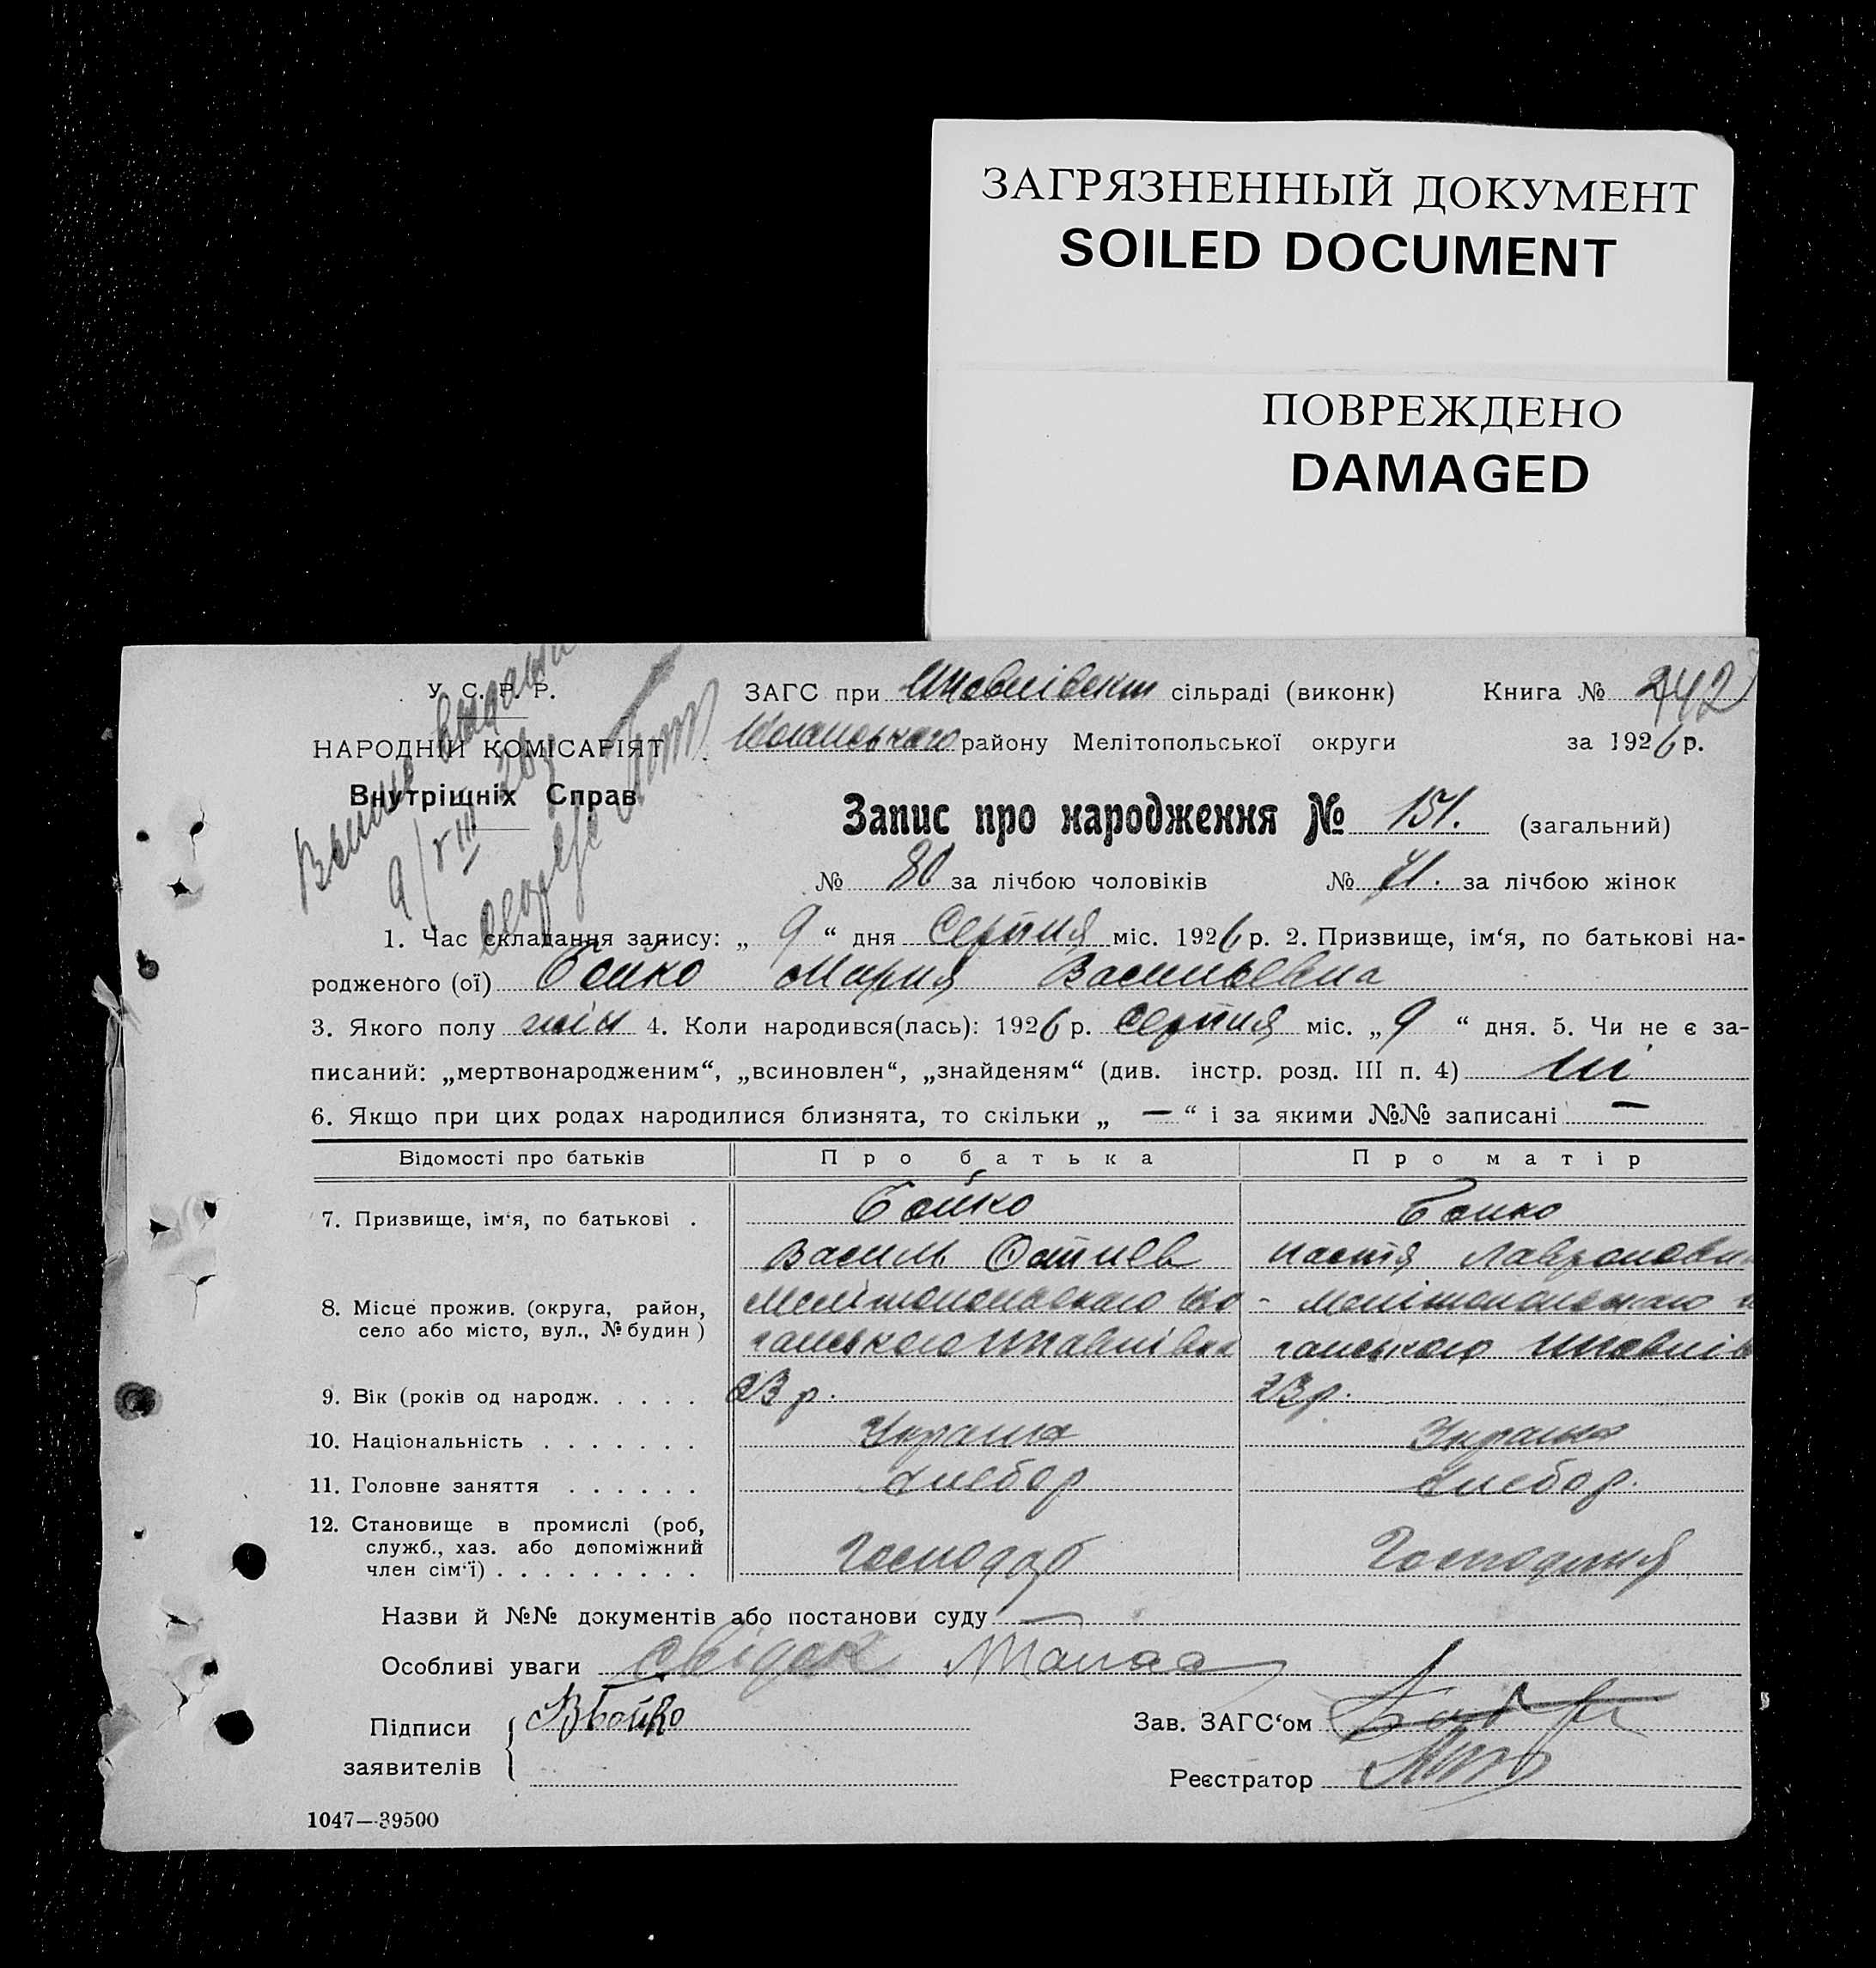 ЗАГРЯЗНЕННЫЙ ДОКУМЕНТ
SOILED DOCUMENT
ПОВРЕЖДЕНО
DAMAGED
У. С. Р. Р.
НАРОДНІЙ КОМІСАРІЯТ
Внутрішніх Справ
ЗАГС при сільраді (виконк) Книга № 242
району Мелітопольської округи за 1926 р.
Запис про народження № 151. (загальний)
№ 80 за лічбою чоловіків № 71. за лічбою жінок
1. Час складання запису: „ 9 “ дня Серпня міс. 1926 р. 2. Призвище, ім‘я, по батькові на-
родженого (ої) Бойко Мария Васильевна
3. Якого полу жін 4. Коли народився(лась): 1926 р. Серпня міс. „ 9 “ дня. 5. Чи не є за-
писаний: „мертвонародженим“, „всиновлен“, „знайденям“ (див. інстр. розд. III п. 4) ні
6. Якщо при цих родах народилися близнята, то скільки „ — “ і за якими №№ записані —
Відомості про батьків Про батька Про матір
7. Призвище, ім‘я, по батькові . Бойко Бойко
Василь Настя
8. Місце прожив. (округа, район,
село або місто, вул., № будин )
9. Вік (років од народж. . . . . 23 р. 23 р.
10. Національність . . . . . . . Україна Україна
11. Головне заняття . . . . . . Хлебор Хлебор.
12. Становище в промислі (роб,
служб., хаз. або допоміжний
член сім‘ї) . . . . . . . . . Господар Господиня
Назви й №№ документів або постанови суду —
Особливі уваги свідок
Підписи
заявителів
ВБойко
Зав. ЗАГС‘ом
Реєстратор
1047—39500